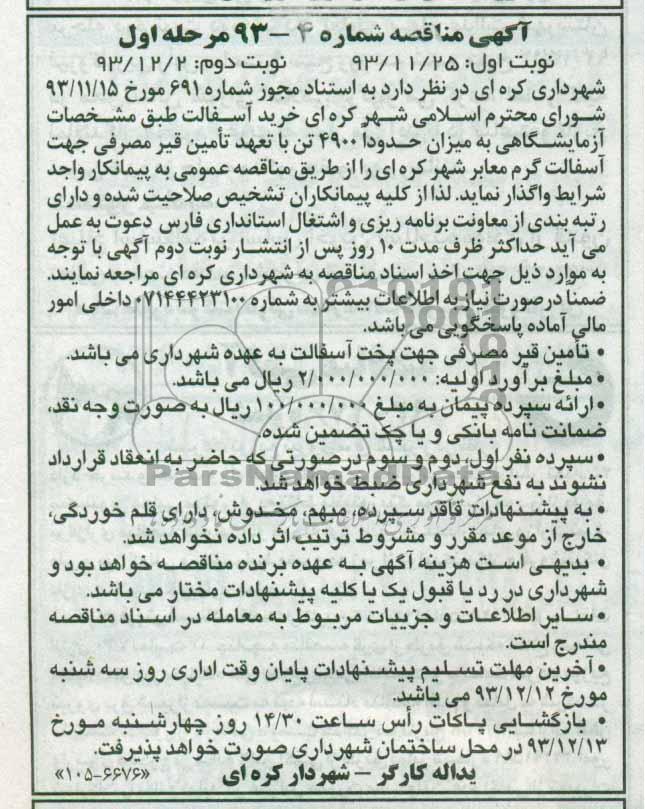 آگهی مناقصه شماره ۴ – ۹۳ مرحله اول
نوبت اول: ۹۳/۱۱/۲۵ نوبت دوم: ۹۳/۱۲/۲
شهرداری کره ای در نظر دارد به استناد مجوز شماره ۶۹۱ مورخ ۹۳/۱۱/۱۵
شورای محترم اسلامی شهر کره ای خرید آسفالت طبق مشخصات
آزمایشگاهی به میزان حدوداً ۴۹۰۰ تن با تعهد تأمین قیر مصرفی جهت
آسفالت گرم معابر شهر کره ای را از طریق مناقصه عمومی به پیمانکار واجد
شرایط واگذار نماید. لذا از کلیه پیمانکاران تشخیص صلاحیت شده و دارای
رتبه بندی از معاونت برنامه ریزی و اشتغال استانداری فارس دعوت به عمل
می آید حداکثر ظرف مدت ۱۰ روز پس از انتشار نوبت دوم آگهی با توجه
به موارد ذیل جهت اخذ اسناد مناقصه به شهرداری کره ای مراجعه نمایند.
ضمناً درصورت نیاز به اطلاعات بیشتر به شماره ۰۷۱۴۴۴۲۳۱۰۰ داخلی امور
مالی آماده پاسخگویی می باشد.
• تأمین قیر مصرفی جهت پخت آسفالت به عهده شهرداری می باشد.
• مبلغ برآورد اولیه: ۲/۰۰۰/۰۰۰/۰۰۰ ریال می باشد.
• ارائه سپرده پیمان به مبلغ ۱۰۰/۰۰۰/۰۰۰ ریال به صورت وجه نقد،
ضمانت نامه بانکی و یا چک تضمین شده.
• سپرده نفر اول، دوم و سوم درصورتی که حاضر به انعقاد قرارداد
نشوند به نفع شهرداری ضبط خواهد شد.
ParsNamadData
• به پیشنهادات فاقد سپرده، مبهم، مخدوش، دارای قلم خوردگی،
خارج از موعد مقرر و مشروط ترتیب اثر داده نخواهد شد.
• بدیهی است هزینه آگهی به عهده برنده مناقصه خواهد بود و
شهرداری در رد یا قبول یک یا کلیه پیشنهادات مختار می باشد.
• سایر اطلاعات و جزییات مربوط به معامله در اسناد مناقصه
مندرج است.
• آخرین مهلت تسلیم پیشنهادات پایان وقت اداری روز سه شنبه
مورخ ۹۳/۱۲/۱۲ می باشد.
• بازگشایی پاکات رأس ساعت ۱۴/۳۰ روز چهارشنبه مورخ
۹۳/۱۲/۱۳ در محل ساختمان شهرداری صورت خواهد پذیرفت.
یداله کارگر – شهردار کره ای «۱۰۵-۶۶۷۶»